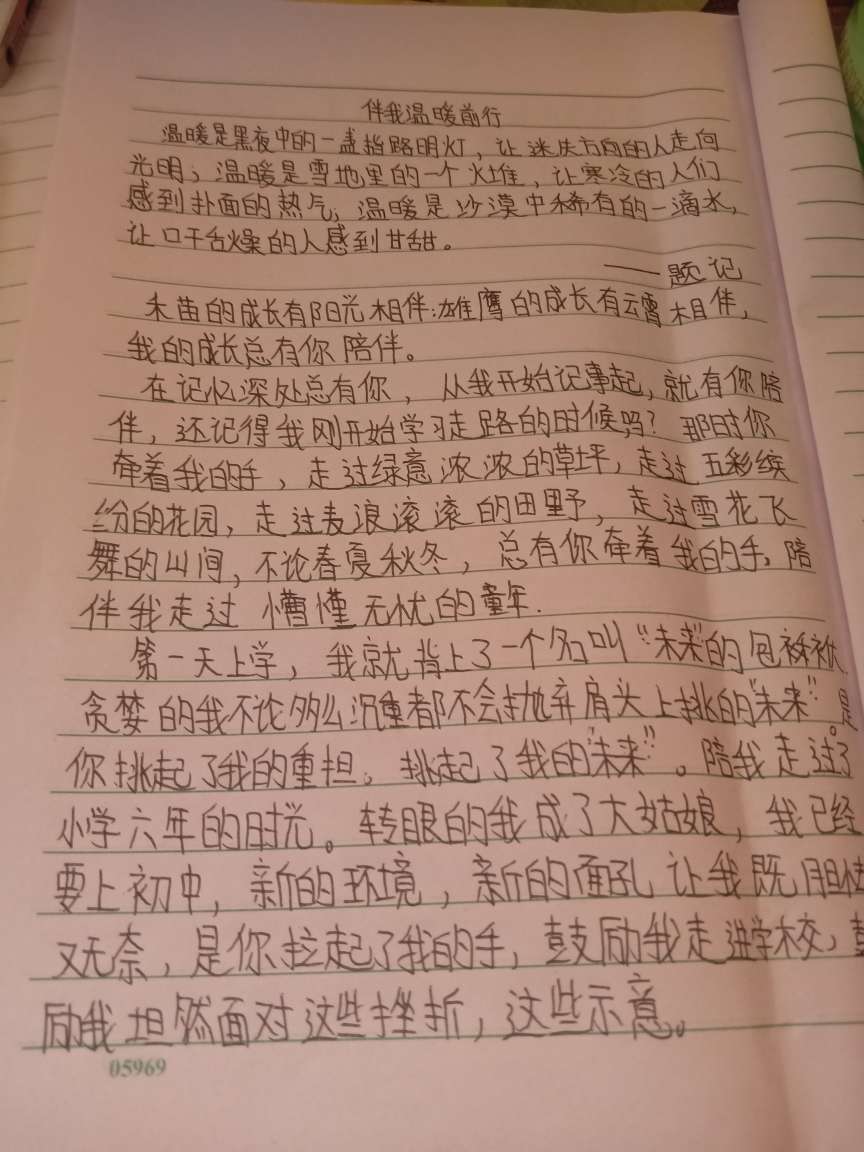 伴我温暖前行
温暖是黑夜中的一盏指路明灯，让迷失方向的人走向
光明；温暖是雪地里的一个火堆，让寒冷的人们
感到扑面的热气；温暖是沙漠中稀有的一滴水，
让口干舌燥的人感到甘甜。
——题记
禾苗的成长有阳光相伴；雄鹰的成长有云霄相伴，
我的成长总有你陪伴。
在记忆深处总有你，从我开始记事起，就有你陪
伴，还记得我刚开始学习走路的时候吗？那时你
牵着我的手，走过绿意浓浓的草坪，走过五彩缤
纷的花园，走过麦浪滚滚的田野，走过雪花飞
舞的山间，不论春夏秋冬，总有你牵着我的手，陪
伴我走过懵懂无忧的童年.
第一天上学，我就背上了一个名叫“未来”的包袱
贪婪的我不论多么沉重都不会抛弃肩头上挑的“未来”。是
你挑起了我的重担。挑起了我的“未来”。陪我走过了
小学六年的时光。转眼的我成了大姑娘，我已经
要上初中，新的环境，新的面孔让我既胆怯
又无奈，是你拉起了我的手，鼓励我走进学校，鼓
励我坦然面对这些挫折，这些示意。
05969